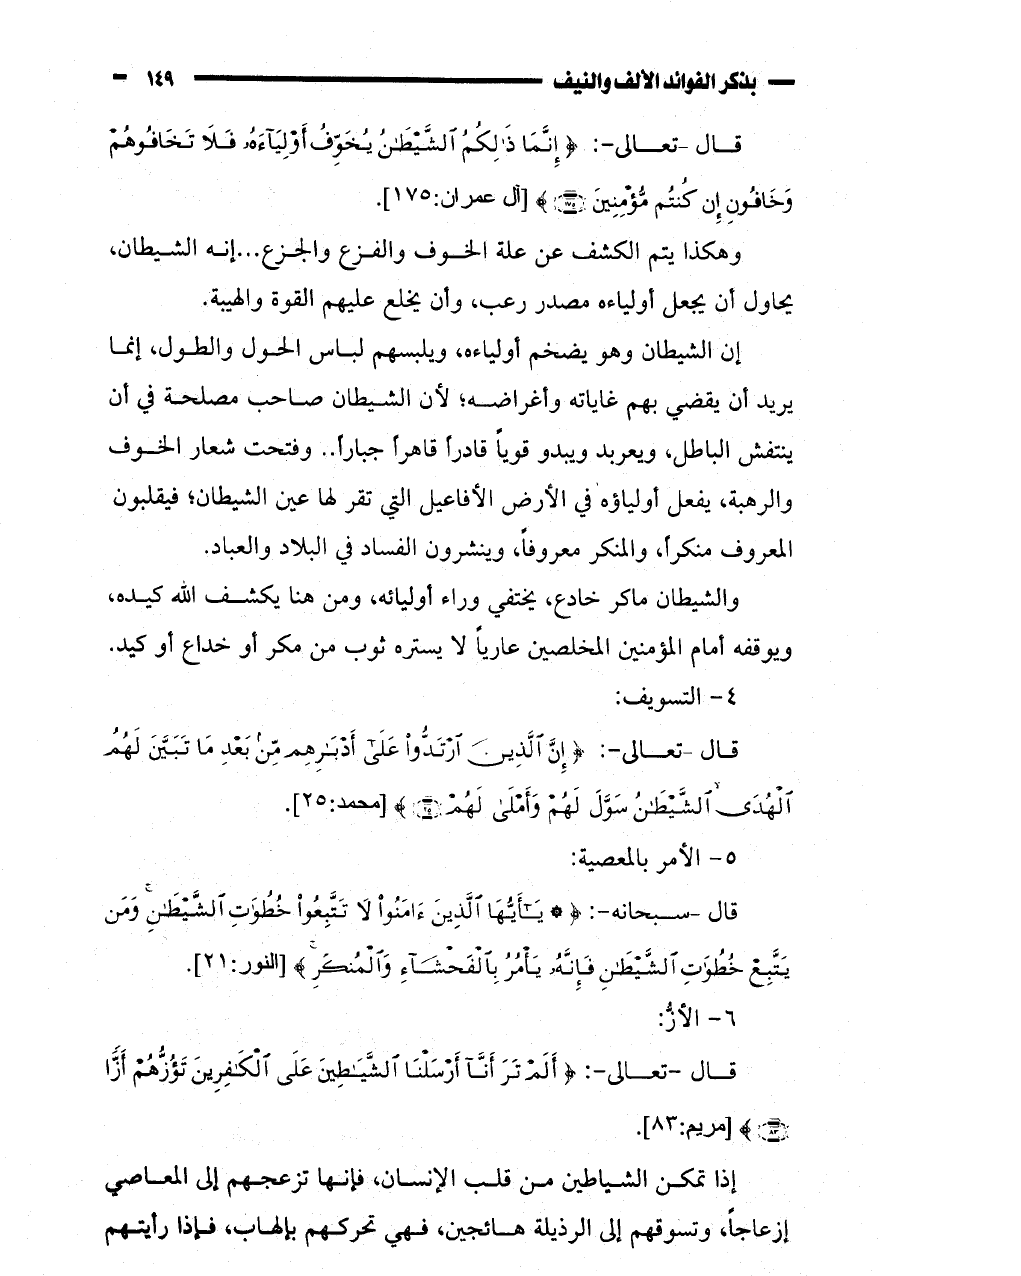 بذكر الفوائد الألف والنيف ١٤٩
قال -تعالى-: ﴿ إِنَّمَا ذَٰلِكُمُ ٱلشَّيْطَٰنُ يُخَوِّفُ أَوْلِيَآءَهُۥ فَلَا تَخَافُوهُمْ
وَخَافُونِ إِن كُنتُم مُّؤْمِنِينَ ۝١٧٥ ﴾ [آل عمران:١٧٥].
وهكذا يتم الكشف عن علة الخوف والفزع والجزع...إنه الشيطان،
يحاول أن يجعل أولياءه مصدر رعب، وأن يخلع عليهم القوة والهيبة.
إن الشيطان وهو يضخم أولياءه، ويلبسهم لباس الحول والطول، إنما
يريد أن يقضي بهم غاياته وأغراضه؛ لأن الشيطان صاحب مصلحة في أن
ينتفش الباطل، ويعربد ويبدو قوياً قادراً قاهراً جباراً.. وفتحت شعار الخوف
والرهبة، يفعل أولياؤه في الأرض الأفاعيل التي تقر لها عين الشيطان؛ فيقلبون
المعروف منكراً، والمنكر معروفاً، وينشرون الفساد في البلاد والعباد.
والشيطان ماكر خادع، يختفي وراء أوليائه، ومن هنا يكشف الله كيده،
ويوقفه أمام المؤمنين المخلصين عارياً لا يستره ثوب من مكر أو خداع أو كيد.
٤- التسويف:
قال -تعالى-: ﴿ إِنَّ ٱلَّذِينَ ٱرْتَدُّوا۟ عَلَىٰٓ أَدْبَٰرِهِم مِّنۢ بَعْدِ مَا تَبَيَّنَ لَهُمُ
ٱلْهُدَى ۙ ٱلشَّيْطَٰنُ سَوَّلَ لَهُمْ وَأَمْلَىٰ لَهُمْ ۝٢٥ ﴾ [محمد:٢٥].
٥- الأمر بالمعصية:
قال -سبحانه-: ﴿ ۞ يَٰٓأَيُّهَا ٱلَّذِينَ ءَامَنُوا۟ لَا تَتَّبِعُوا۟ خُطُوَٰتِ ٱلشَّيْطَٰنِ ۚ وَمَن
يَتَّبِعْ خُطُوَٰتِ ٱلشَّيْطَٰنِ فَإِنَّهُۥ يَأْمُرُ بِٱلْفَحْشَآءِ وَٱلْمُنكَرِ ۚ ﴾ [النور:٢١].
٦- الأزُّ:
قال -تعالى-: ﴿ أَلَمْ تَرَ أَنَّآ أَرْسَلْنَا ٱلشَّيَٰطِينَ عَلَى ٱلْكَٰفِرِينَ تَؤُزُّهُمْ أَزًّا
۝٨٣ ﴾ [مريم:٨٣].
إذا تمكن الشياطين من قلب الإنسان، فإنها تزعجهم إلى المعاصي
إزعاجاً، وتسوقهم إلى الرذيلة هائجين، فهي تحركهم بإلهاب، فإذا رأيتهم